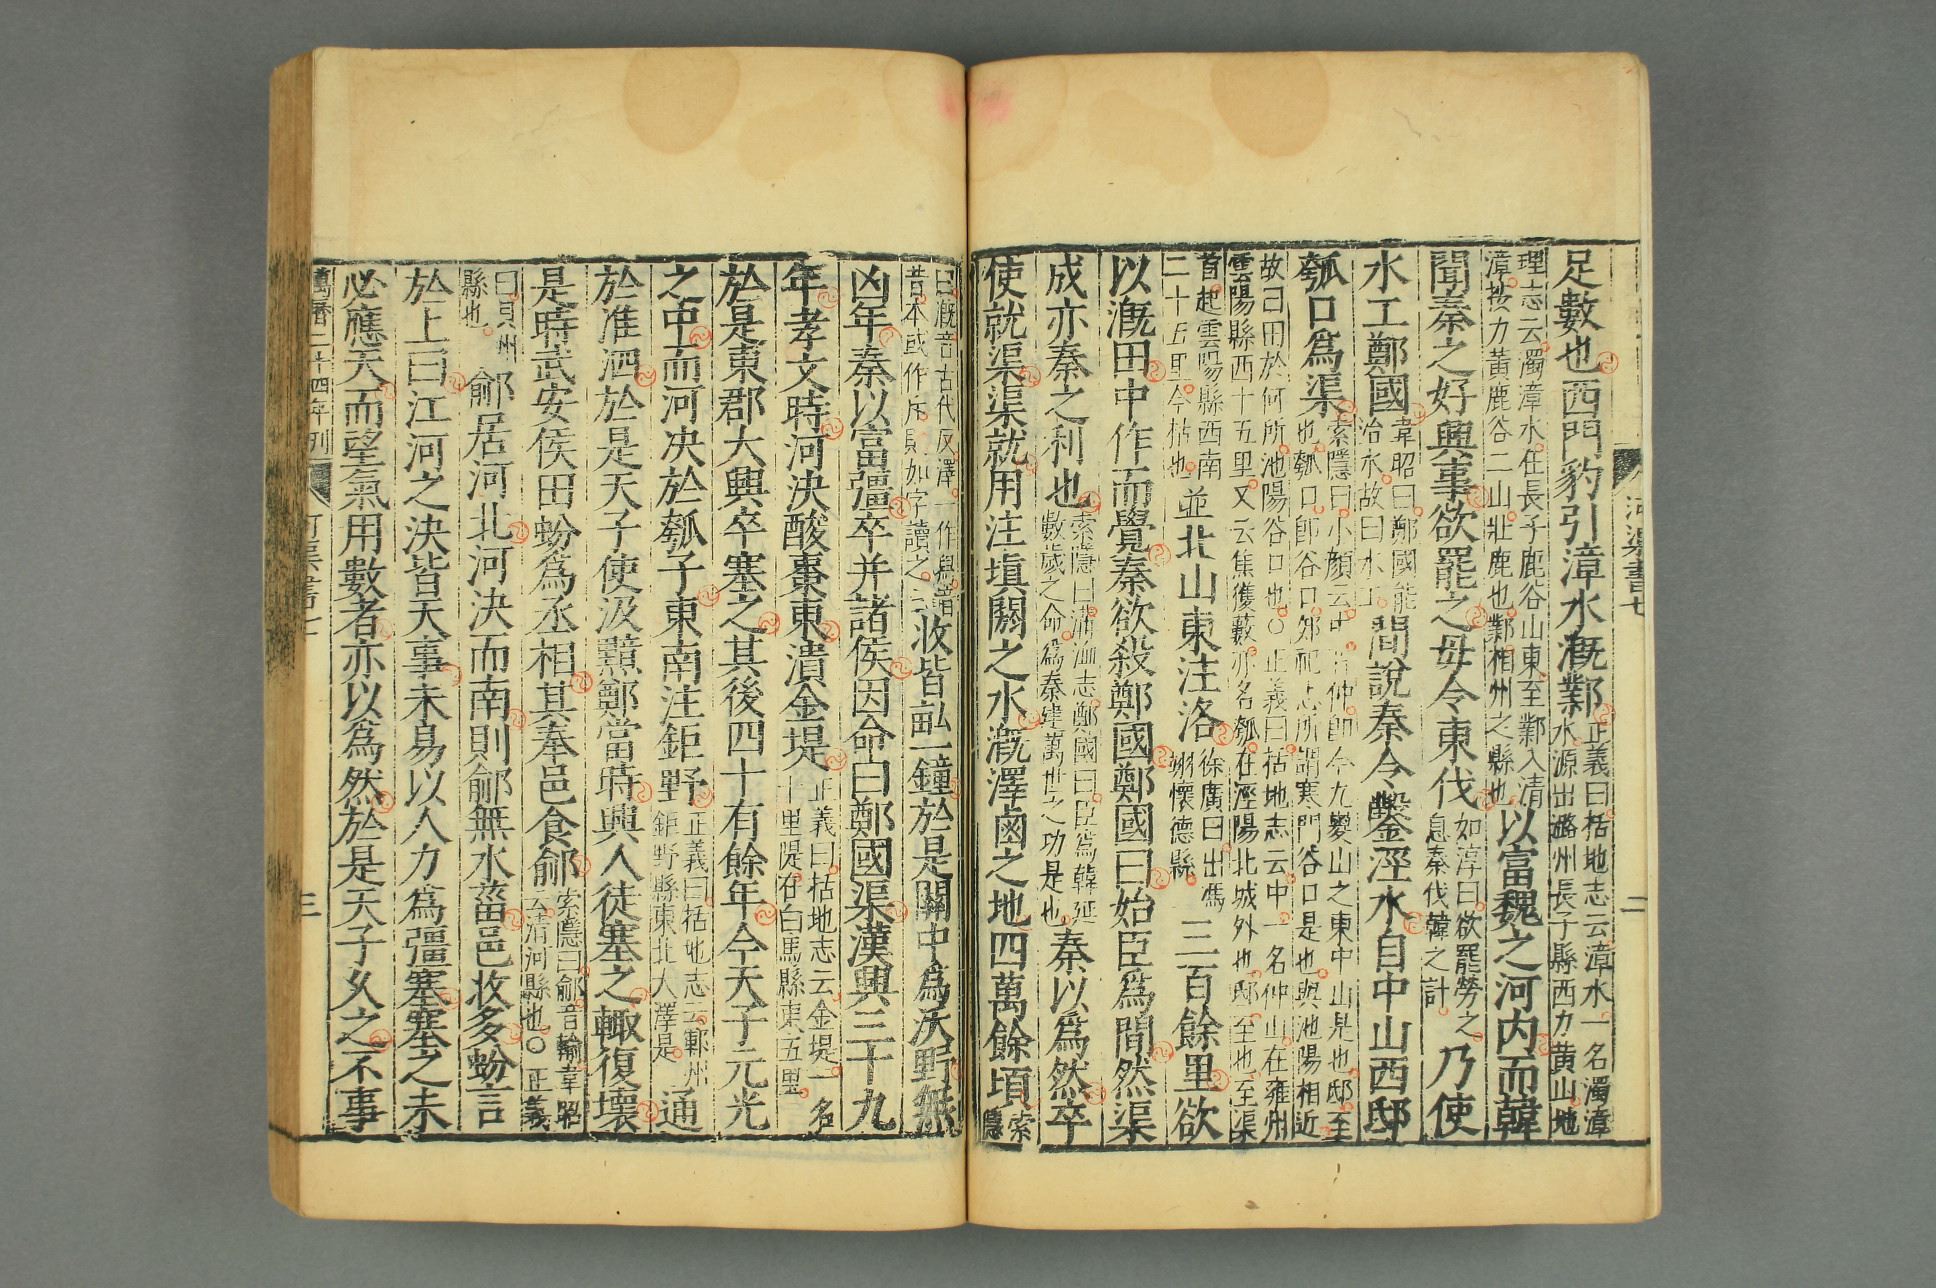 河渠書七 二
足數也西門豹引漳水溉鄴
正義曰括地志云漳水一名濁漳
水源出潞州長子縣西力黃山地
理志云濁漳水在長子鹿谷山東至鄴入清
漳按力黃鹿谷二山壯鹿也鄴相州之縣也
以富魏之河內而韓
聞秦之好興事欲罷之毋令東伐
如淳曰欲罷勞之
息秦伐韓之計
乃使
水工鄭國
韋昭曰鄭國能
治水故曰水工
間說秦令鑿涇水自中山西邸
瓠口爲渠
索隱曰小顏云中音仲即今九嵏山之東中山是也邸至
也瓠口即谷口郊祀志所謂寒門谷口是也與池陽相近
故曰田於何所池陽谷口也○正義曰括地志云中山一名仲山在雍州
雲陽縣西十五里又云焦獲藪亦名瓠在涇陽北城外也邸至也至渠
首起雲陽縣西南
二十五里今枯也
並北山東注洛
徐廣曰出馮
翊懷德縣
三百餘里欲
以溉田中作而覺秦欲殺鄭國鄭國曰始臣爲間然渠
成亦秦之利也
索隱曰溝洫志鄭國曰臣爲韓延
數歲之命爲秦建萬世之功是也
秦以爲然卒
使就渠渠就用注填閼之水溉澤鹵之地四萬餘頃
索
隱
曰溉音古代反澤一作舄音
昔本或作斥則如字讀之
收皆畝一鐘於是關中爲沃野無
凶年秦以富彊卒并諸侯因命曰鄭國渠漢興三十九
年孝文時河決酸棗東潰金堤
正義曰括地志云金堤一名
千里堤在白馬縣東五里
於是東郡大興卒塞之其後四十有餘年今天子元光
之中而河決於瓠子東南注鉅野
正義曰括地志云鄆州
鉅野縣東北大澤是
通
於淮泗於是天子使汲黯鄭當時興人徒塞之輒復壞
是時武安侯田蚡爲丞相其奉邑食鄃
索隱曰鄃音輸韋昭
云清河縣也○正義
曰貝州
縣也
鄃居河北河決而南則鄃無水菑邑收多蚡言
於上曰江河之決皆天事未易以人力爲彊塞塞之未
必應天而望氣用數者亦以爲然於是天子久之不事
萬曆二十四年刊 河渠書七 三